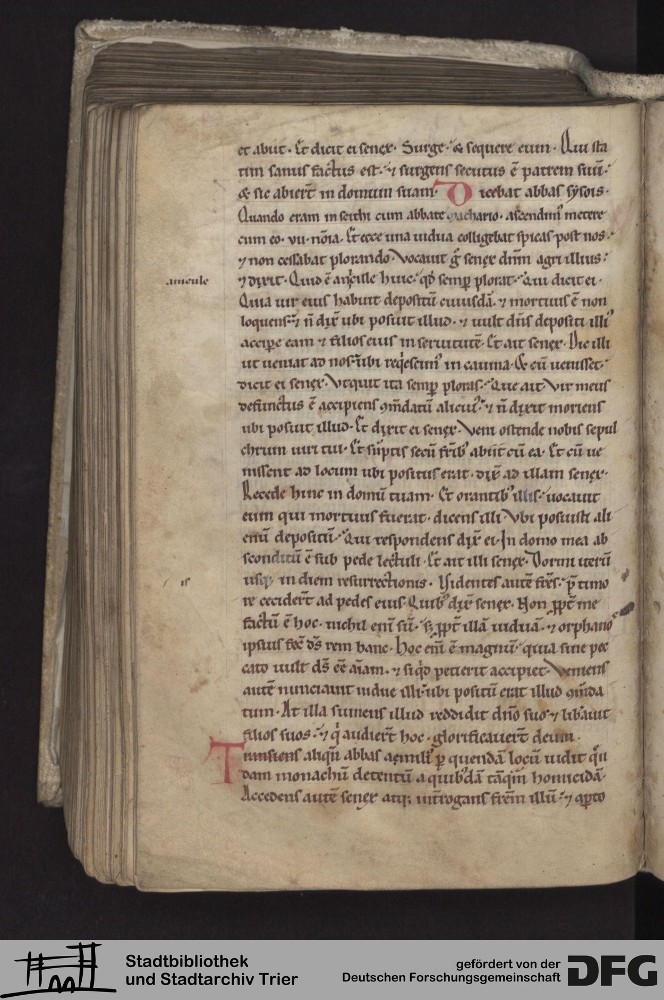 et abiit. Et dicit ei senex. Surge. & sequere eum. Qui sta
tim sanus factus est. ⁊ surgens secutus ē patrem suū.
& sic abierт̄ in domum suam. Dicebat abbas sysois.
Quando eram in scithi cum abbate machario. ascendimꝰ metere
cum eo. vii. noīa. Et ecce una uidua colligebat spicas post nos.
⁊ non cessabat plorando. Vocauit g̊ senex dn̄m agri illius.
⁊ dixit. Quid ē huic. qd̄ semp̄ plorat. Qui dicit ei.
anicule
Quia uir eius habuit depositū cuiusdā. ⁊ mortuus ē non
loquens. ⁊ n̄ dix̄ ubi posuit illud. ⁊ uult dn̄s depositi illiꝰ
accipere eam ⁊ filios eius in seruitutē. Et ait senex. Dic illi
ut ueniat ad nos. ubi reqescimꝰ in cauma. & cū uenisset.
dicit ei senex. Vtquit ita semp̄ ploras. Que ait. Vir meus
defunctus ē accipiens ꝯmdatū alicuiꝰ. ⁊ n̄ dixit moriens
ubi posuit illud. Et dixit ei senex. Veni ostende nobis sepul
chrum uiri tui. Et sūptis secū fr̄ibꝰ abiit cū ea. Et cū ue
nissent ad locum ubi positus erat. dix̄ ad illam senex.
Recede hinc in domū tuam. Et orantibꝰ illis. uocauit
eum qui mortuus fuerat. dicens illi. Vbi posuisti ali
enū depositū. Qui respondens dix̄ ei. In domo mea ab
sconditū ē sub pede lectuli. Et ait illi senex. Dormi iterū
usq; in diem resurrectionis. Videntes autē fr̄s. p̄ timo
is
re cecidert̄ ad pedes eius. Quibꝰ dix̄ senex. Non ꝓpt̄ me
factū ē hoc. nichil eni͂ sū. sꝫ ꝓpt̄ illā uiduā. ⁊ orphanos
ipsius fec̄ ds̄ rem hanc. Hoc eni͂ ē magnū. quia sine pec
cato uult ds̄ ēē aīam. ⁊ si qd̄ petierit accipiet. Veniens
autē nunciauit uidue illi. ubi positū erat illud ꝯmda
tum. At illa sumens illud reddidit dn̄o suo. ⁊ libauit
filios suos. ⁊ q̇ audiert̄ hoc. glorificauert̄ deum.
Transiens aliqn̄ abbas p̱ quendā locū uidit qn̄
dam monachū detentū a quibꝰdā tāqm̄ homicidā.
Accedens autē senex atq; int̄rogans frēm illū. ⁊ cꝑto
Stadtbibliothek
und Stadtarchiv Trier
gefördert von der
Deutschen Forschungsgemeinschaft
DFG